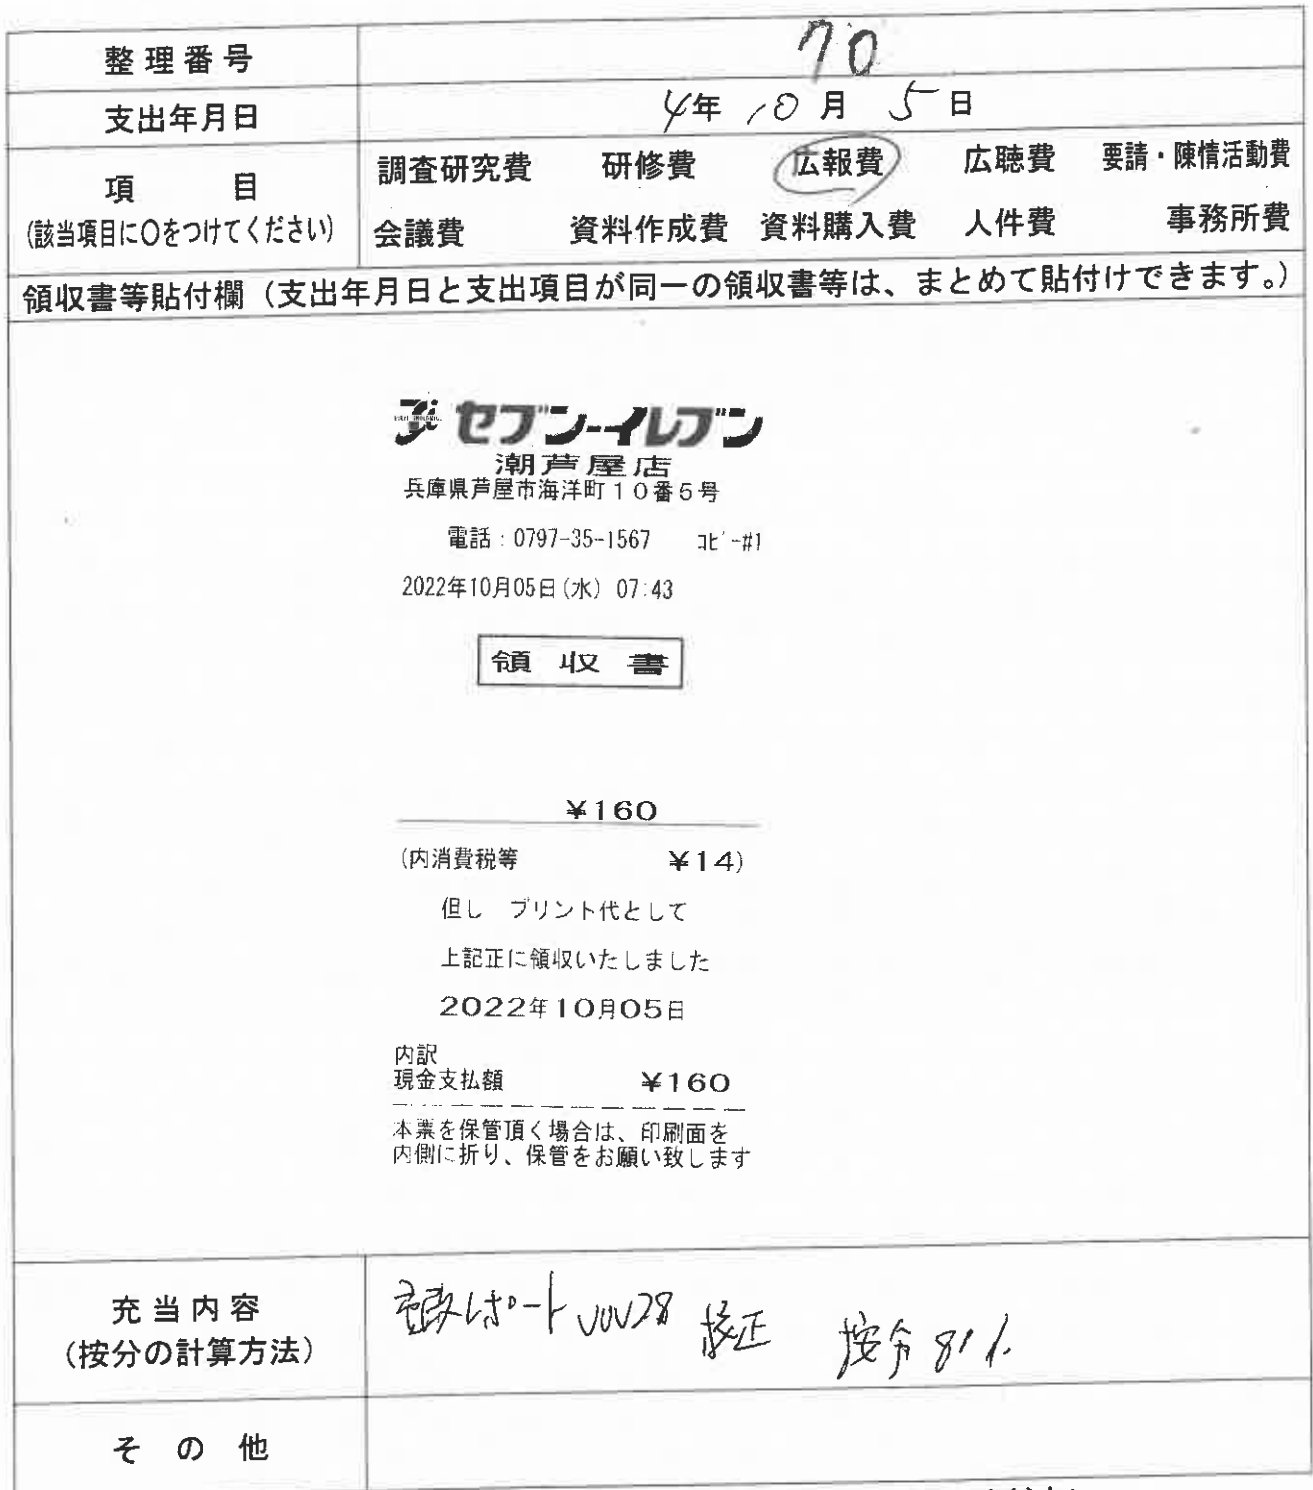 整理番号 70
支出年月日 4年10月5日
項目 調査研究費 研修費 広報費 広聴費 要請・陳情活動費
(該当項目に○をつけてください) 会議費 資料作成費 資料購入費 人件費 事務所費
領収書等貼付欄（支出年月日と支出項目が同一の領収書等は、まとめて貼付けできます。）
セブン-イレブン
潮芦屋店
兵庫県芦屋市海洋町10番5号
電話：0797-35-1567 ｺﾋﾟｰ#1
2022年10月05日(水) 07:43
領収書
¥160
(内消費税等 ¥14)
但し プリント代として
上記正に領収いたしました
2022年10月05日
内訳
現金支払額 ¥160
本票を保管頂く場合は、印刷面を
内側に折り、保管をお願い致します
充当内容 レポート 28 校正 按分81%
(按分の計算方法)
その他